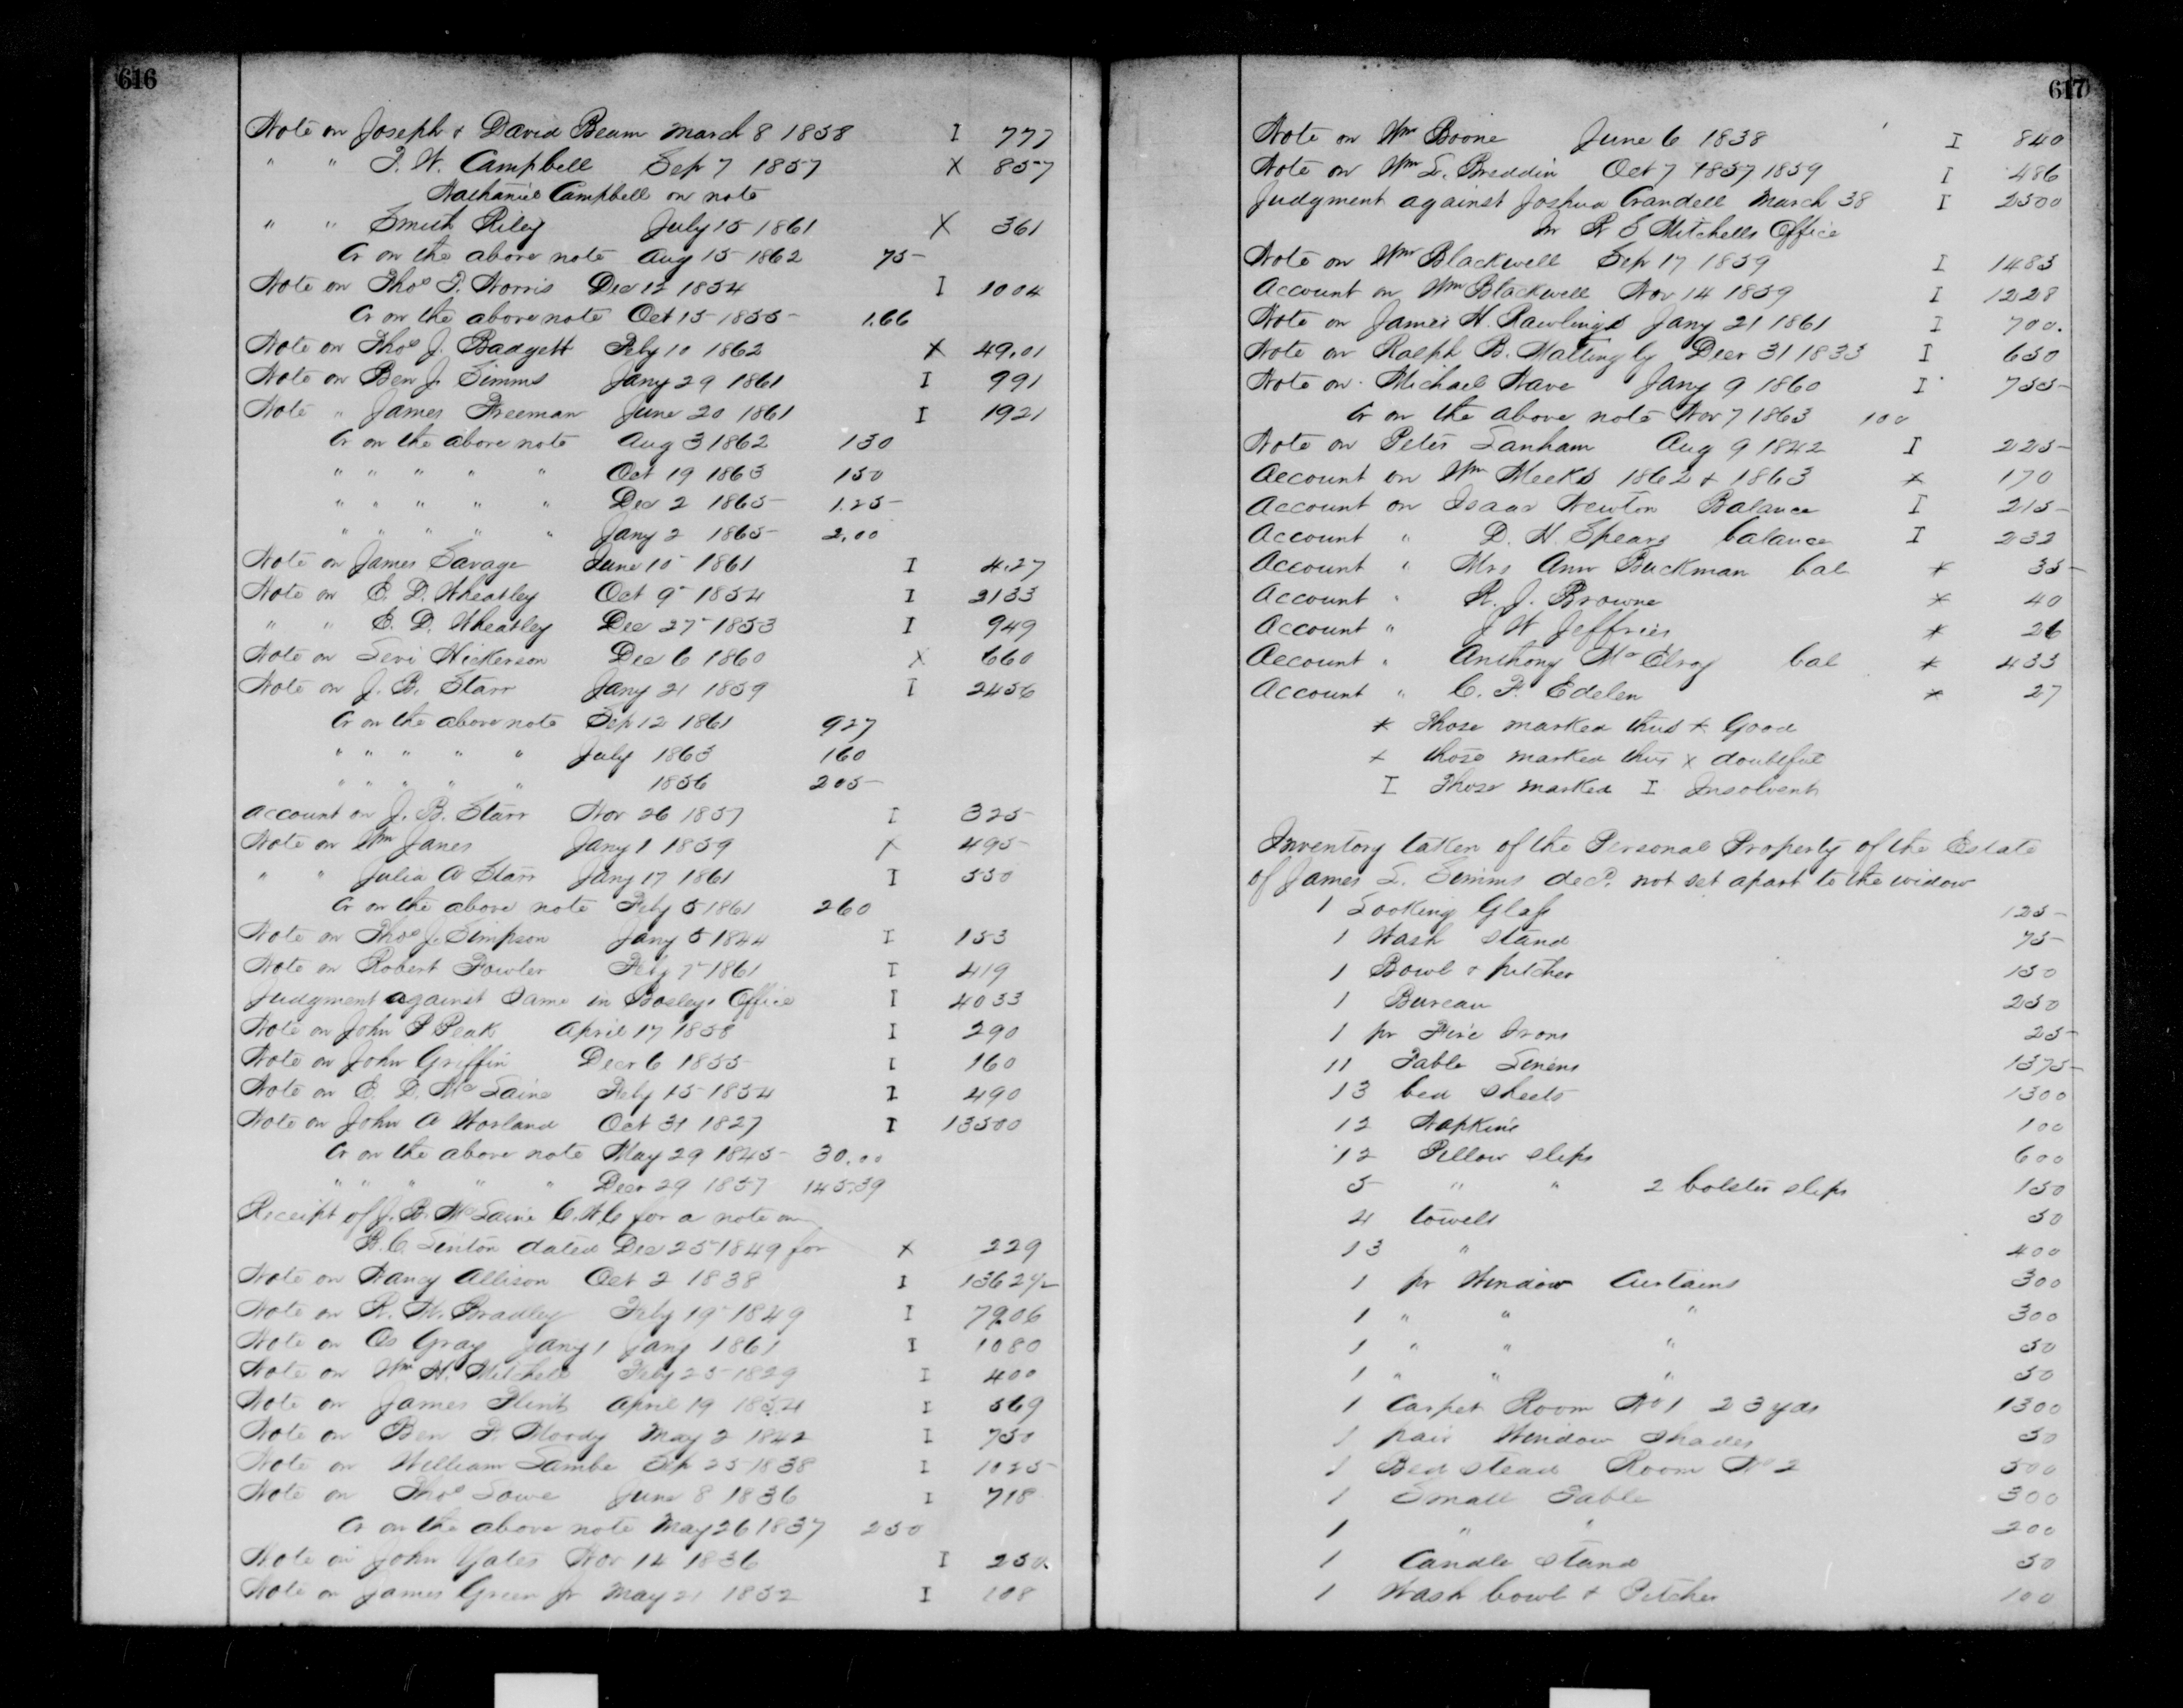 616
Note on Joseph & David Beam March 8 1858 I 777
" " T. W. Campbell Sep 7 1857 X 857
Nathaniel Campbell on note
" " Smith Riley July 15 1861 X 361
Cr on the above note Aug 15 1862 75
Note on Thos T. Norris Dec 12 1854 I 1004
Cr on the above note Oct 15 1855 1.66
Note on Thos J. Badgett Feby 10 1862 X 49.01
Note on Ben J. Simms Jany 29 1861 I 991
Note " James Freeman June 20 1861 I 1921
Cr on the above note Aug 3 1862 150
" " " " " Oct 19 1863 150
" " " " " Dec 2 1865 1.25
" " " " " Jany 2 1865 2.00
Note on James Savage June 10 1861 I 4.27
Note on E. D. Wheatley Oct 9 1854 I 3133
" " E. D. Wheatley Dec 27 1853 I 949
Note on Levi Hickerson Dec 6 1860 X 660
Note on J. B. Starr Jany 21 1859 I 2456
Cr on the above note Sep 12 1861 927
" " " " " July 1863 160
" " " " " 1856 205
Account on J. B. Starr Nov 26 1857 I 325
Note on Wm Janes Jany 1 1859 X 495
" " Julia A Starr Jany 17 1861 I 550
Cr on the above note Feby 5 1861 260
Note on Thos J. Simpson Jany 5 1844 I 153
Note on Robert Fowler Feby 7 1861 I 419
Judgment against Same in Bosleys Office I 4033
Note on John P Peak April 17 1858 I 290
Note on John Griffin Decr 6 1855 I 160
Note on E. D. McLaine Feby 15 1854 I 490
Note on John A Worland Oct 31 1827 I 13500
Cr on the above note May 29 1845 30.00
" " " " " Decr 29 1857 145.39
Receipt of J. B. McLaine C.M.C for a note on
B. C. Linton dated Dec 25 1849 for X 229
Note on Nancy Allison Oct 2 1838 I 1362½
Note on R. W. Bradley Feby 19 1849 I 7906
Note on Os Gray Jany 1 Jany 1861 I 1080
Note on Wm H. Mitchell Feby 25 1829 I 400
Note on James Flint April 19 1854 I 569
Note on Ben F. Moody May 2 1842 I 750
Note on William Lambe Sep 25 1838 I 1025
Note on Thos Lowe June 8 1836 I 718
Cr on the above note May 26 1837 250
Note on John Yates Nov 14 1836 I 250
Note on James Green Jr May 21 1852 I 108
617
Note on Wm Boone June 6 1838 I 840
Note on Wm L. Breddin Oct 7 1857 1859 I 486
Judgment against Joshua Crandell March 38 I 2500
In R E Mitchells Office
Note on Wm Blackwell Sep 17 1859 I 1485
Account on Wm Blackwell Nov 14 1859 I 1228
Note on James H. Rawlings Jany 21 1861 I 700.
Note on Ralph B. Mattingly Decr 31 1833 I 650
Note on Michael Nave Jany 9 1860 I 755
Cr on the above note Nov 7 1863 100
Note on Peter Lanham Aug 9 1842 I 225
Account on Wm Meeks 1862 & 1863 * 170
Account on Isaac Newton Balance I 215
Account " D. H. Spears balance I 232
Account " Mrs Ann Buckman bal * 35
Account " R. J. Browne * 40
Account " J W Jeffries * 26
Account " Anthony McElroy bal * 433
Account " C. F. Edelen * 27
* Those marked thus * Good
X those marked thus X doubtful
I Those marked I Insolvent
Inventory taken of the Personal Property of the Estate
of James L. Simms decd. not set apart to the widow
1 Looking Glass 125
1 Wash stand 75
1 Bowl & pitcher 150
1 Bureau 250
1 pr Fire Irons 25
11 Table Linens 1375
13 bed sheets 1300
12 Napkins 100
12 Pillow slips 600
5 " " 2 bolster slips 150
4 towels 50
13 " 400
1 pr Window Curtains 300
1 " " " 300
1 " " " 50
1 " " " 50
1 Carpet Room No 1 23 yds 1300
1 pair Window Shades 50
1 Bed stead Room No 2 500
1 Small Table 300
1 " " 200
1 Candle stand 50
1 Wash bowl & Pitcher 100